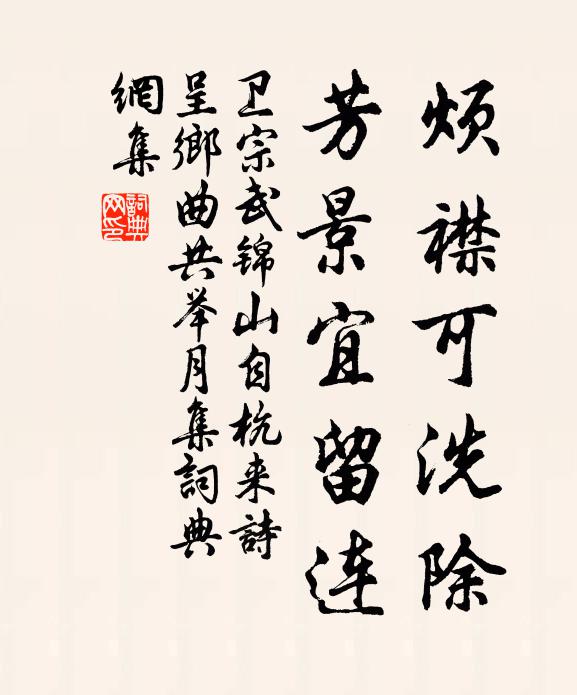 烦襟可洗除
芳景宜留连
卫宗武锦山自杭来詩
呈鄉曲共举月集詞典
網集
詞典
网印